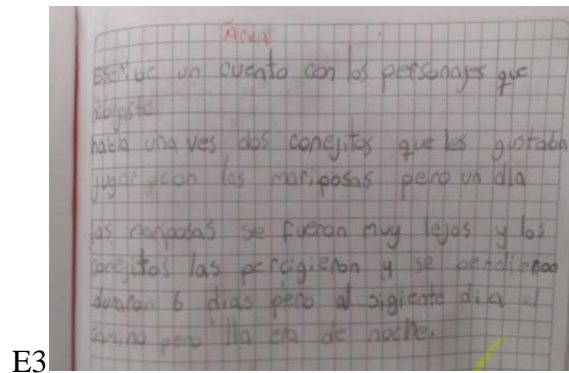 Escribe un cuento con los personajes que
dibujaste
habia una ves dos conejitos que les gustaba
jugar con las mariposas pero un dia
las mariposas se fueron muy lejos y los
conejitos las percigieron y se perdieron
duraron 6 dias pero al sigiente dia
camino pero lla era de noche.
E3